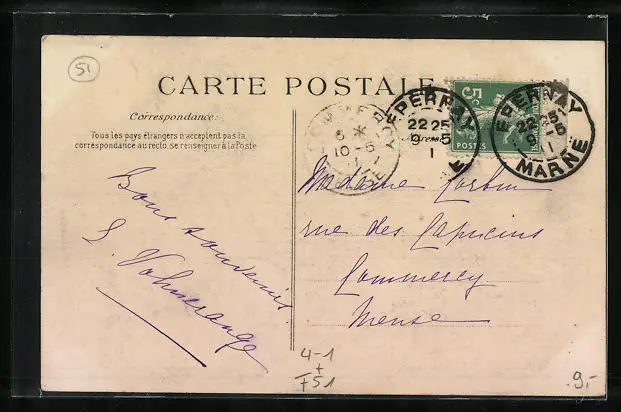 51
CARTE POSTALE
Correspondance:
Tous les pays étrangers n'acceptent pas la
correspondance au recto, se renseigner à la Poste
Bons souvenirs
L. Vohmerange
EPERNAY
22 25
9-5
1
5
POSTES
EPERNAY
22 25
9-5
1
MARNE
6 *
10-5
Madame Corbin
rue des Capucins
Commercy
Meuse
4-1
+
+51
9.-